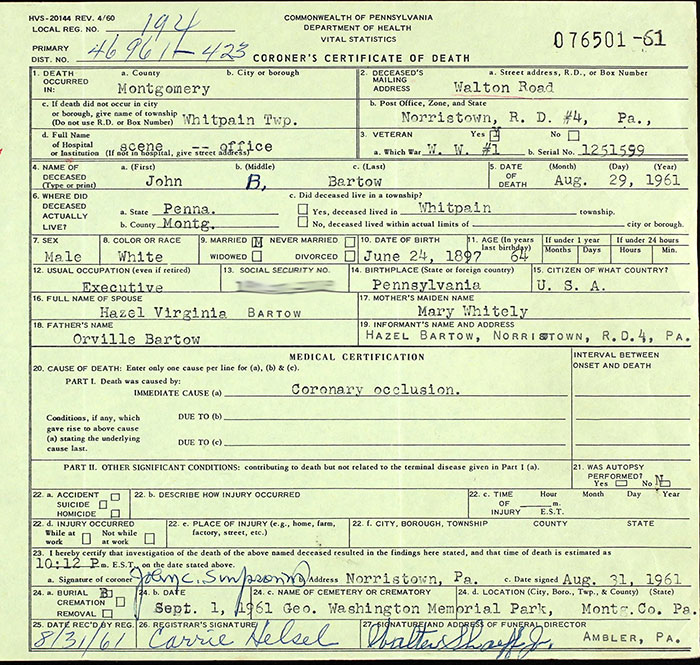 HVS-20144 REV. 4/60
LOCAL REG. NO. 194
PRIMARY DIST. NO. 46961-423
COMMONWEALTH OF PENNSYLVANIA
DEPARTMENT OF HEALTH
VITAL STATISTICS
CORONER'S CERTIFICATE OF DEATH
076501-61
1. DEATH OCCURRED IN: a. County b. City or borough
Montgomery
2. DECEASED'S MAILING ADDRESS a. Street address, R.D., or Box Number
Walton Road
c. If death did not occur in city or borough, give name of township (Do not use R.D. or Box Number) Whitpain Twp.
b. Post Office, Zone, and State
Norristown, R. D. #4, Pa.,
d. Full Name of Hospital or Institution (If not in hospital, give street address) scene -- office
3. VETERAN Yes X No
a. Which War W. W. #1 b. Serial No. 1251599
4. NAME OF DECEASED (Type or print) a. (First) b. (Middle) c. (Last)
John B. Bartow
5. DATE OF DEATH (Month) (Day) (Year)
Aug. 29, 1961
6. WHERE DID DECEASED ACTUALLY LIVE?
a. State Penna.
b. County Montg.
c. Did deceased live in a township?
Yes, deceased lived in Whitpain township.
No, deceased lived within actual limits of city or borough.
7. SEX
Male
8. COLOR OR RACE
White
9. MARRIED X NEVER MARRIED
WIDOWED DIVORCED
10. DATE OF BIRTH
June 24, 1897
11. AGE (In years last birthday)
64
If under 1 year
Months Days
If under 24 hours
Hours Min.
12. USUAL OCCUPATION (even if retired)
Executive
13. SOCIAL SECURITY NO.
14. BIRTHPLACE (State or foreign country)
Pennsylvania
15. CITIZEN OF WHAT COUNTRY?
U. S. A.
16. FULL NAME OF SPOUSE
Hazel Virginia BARTOW
17. MOTHER'S MAIDEN NAME
Mary Whitely
18. FATHER'S NAME
Orville Bartow
19. INFORMANT'S NAME AND ADDRESS
HAZEL BARTOW, NORRISTOWN, R.D.4, PA.
MEDICAL CERTIFICATION
INTERVAL BETWEEN ONSET AND DEATH
20. CAUSE OF DEATH: Enter only one cause per line for (a), (b) & (c).
PART I. Death was caused by:
IMMEDIATE CAUSE (a) Coronary occlusion.
Conditions, if any, which gave rise to above cause (a) stating the underlying cause last.
DUE TO (b)
DUE TO (c)
PART II. OTHER SIGNIFICANT CONDITIONS: contributing to death but not related to the terminal disease given in Part I (a).
21. WAS AUTOPSY PERFORMED?
Yes No
22. a. ACCIDENT
SUICIDE
HOMICIDE
22. b. DESCRIBE HOW INJURY OCCURRED
22. c. TIME OF INJURY Hour m. E.S.T. Month Day Year
22. d. INJURY OCCURRED
While at work Not while at work
22. e. PLACE OF INJURY (e.g., home, farm, factory, street, etc.)
22. f. CITY, BOROUGH, TOWNSHIP COUNTY STATE
23. I hereby certify that investigation of the death of the above named deceased resulted in the findings here stated, and that time of death is estimated as
10:12 P.m. E.S.T. on the date stated above.
a. Signature of coroner John C. Simpson b. Address Norristown, Pa. c. Date signed Aug. 31, 1961
24. a. BURIAL
CREMATION
REMOVAL
24. b. DATE
Sept. 1, 1961
24. c. NAME OF CEMETERY OR CREMATORY
Geo. Washington Memorial Park,
24. d. LOCATION (City, Boro., Twp., & County) (State)
Montg. Co. Pa.
25. DATE REC'D BY REG.
8/31/61
26. REGISTRAR'S SIGNATURE
Carrie Helsel
27. SIGNATURE AND ADDRESS OF FUNERAL DIRECTOR
Walter AMBLER, PA.